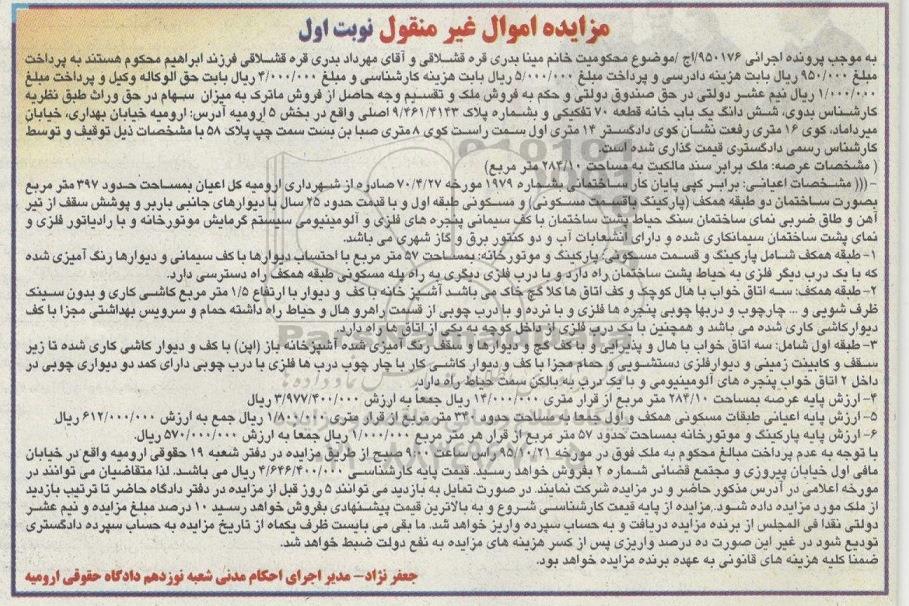 مزایده اموال غیر منقول نوبت اول
به موجب پرونده اجرائی ۹۵۰۱۷۶/اج /موضوع محکومیت خانم مینا بدری قره قشلاقی و آقای مهرداد بدری قره قشلاقی فرزند ابراهیم محکوم هستند به پرداخت
مبلغ ۹۵۰/۰۰۰ ریال بابت هزینه دادرسی و پرداخت مبلغ ۵/۰۰۰/۰۰۰ ریال بابت هزینه کارشناسی و مبلغ ۴/۰۰۰/۰۰۰ ریال بابت حق الوکاله وکیل و پرداخت مبلغ
۱/۰۰۰/۰۰۰ ریال نیم عشر دولتی در حق صندوق دولتی و حکم به فروش ملک و تقسیم وجه حاصل از فروش ماترک به میزان سهام در حق وراث طبق نظریه
کارشناس بدوی، شش دانگ یک باب خانه قطعه ۷۰ تفکیکی و بشماره پلاک ۹/۴۶۱/۴۱۴۳ اصلی واقع در بخش ۵ ارومیه آدرس: ارومیه خیابان بهداری، خیابان
میرداماد، کوی ۱۶ متری رفعت نشان کوی دادگستر ۱۴ متری اول سمت راست کوی ۸ متری صبا بن بست سمت چپ پلاک ۵۸ با مشخصات ذیل توقیف و توسط
کارشناس رسمی دادگستری قیمت گذاری شده است.
( مشخصات عرصه: ملک برابر سند مالکیت به مساحت ۲۸۴/۱۰ متر مربع)
- ((( مشخصات اعیانی: برابر کپی پایان کار ساختمانی بشماره ۱۹۷۹ مورخه ۷۰/۴/۲۷ صادره از شهرداری ارومیه کل اعیان بمساحت حدود ۳۹۷ متر مربع
بصورت ساختمان دو طبقه همکف (پارکینگ باقسمت مسکونی) و مسکونی طبقه اول و با قدمت حدود ۲۵ سال با دیوارهای جانبی باربر و پوشش سقف از تیر
آهن و طاق ضربی نمای ساختمان سنگ حیاط پشت ساختمان با کف سیمانی پنجره های فلزی و آلومینیومی سیستم گرمایش موتورخانه و با رادیاتور فلزی و
نمای پشت ساختمان سیمانکاری شده و دارای انشعابات آب و دو کنتور برق و گاز شهری می باشد.
۱- طبقه همکف شامل پارکینگ و قسمت مسکونی: پارکینگ و موتورخانه: بمساحت ۵۷ متر مربع با احتساب دیوارها با کف سیمانی و دیوارها رنگ آمیزی شده
که با یک درب دیگر فلزی به حیاط پشت ساختمان راه دارد و با درب فلزی دیگری به راه پله مسکونی طبقه همکف راه دسترسی دارد.
۲- طبقه همکف: سه اتاق خواب با هال کوچک و کف اتاق ها کلا گچ خاک می باشد آشپز خانه با کف و دیوار با ارتفاع ۱/۵ متر مربع کاشی کاری و بدون سینک
ظرف شویی و ... چارچوب و دربها چوبی پنجره ها فلزی و با نرده و با درب چوبی از قسمت راهرو هال و حیاط راه داشته حمام و سرویس بهداشتی مجزا با کف
دیوارکاشی کاری شده می باشد و همچنین با یک درب فلزی از داخل کوچه به یکی از اتاق ها راه دارد.
۳- طبقه اول شامل: سه اتاق خواب با هال و پذیرایی و با کف گچ و دیوارها و سقف رنگ آمیزی شده آشپزخانه باز (اپن) با کف و دیوار کاشی کاری شده تا زیر
سقف و کابینت زمینی و دیوارفلزی دستشویی و حمام مجزا با کف و دیوار کاشی کار با چار چوب درب ها فلزی با درب چوبی دارای کمد دو دیواری چوبی در
داخل ۲ اتاق خواب پنجره های آلومینیومی و با یک درب به بالکن سمت حیاط راه دارد.
۴- ارزش پایه عرصه بمساحت ۲۸۴/۱۰ متر مربع از قرار متری ۱۴/۰۰۰/۰۰۰ ریال جمعا به ارزش ۳/۹۷۷/۴۰۰/۰۰۰ ریال
۵- ارزش پایه اعیانی طبقات مسکونی همکف و اول جمعا به مساحت حدود ۳۴۰ متر مربع از قرار متری ۱/۸۰۰/۰۰۰ ریال جمع به ارزش ۶۱۲/۰۰۰/۰۰۰ ریال
۶- ارزش پایه پارکینگ و موتورخانه بمساحت حدود ۵۷ متر مربع از قرار هر متر مربع ۱/۰۰۰/۰۰۰ ریال جمعا به ارزش ۵۷۰/۰۰۰/۰۰۰ ریال.
با توجه به عدم پرداخت مبالغ محکوم به ملک فوق در مورخه ۹۵/۱۰/۲۱ راس ساعت ۹:۰۰ صبح از طریق مزایده در دفتر شعبه ۱۹ حقوقی ارومیه واقع در خیابان
مافی اول خیابان پیروزی و مجتمع قضائی شماره ۲ بفروش خواهد رسید. قیمت پایه کارشناسی ۴/۶۴۶/۴۰۰/۰۰۰ ریال می باشد. لذا متقاضیان می توانند در
مورخه اعلامی در آدرس مذکور حاضر و در مزایده شرکت نمایند. در صورت تمایل به بازدید می توانند ۵ روز قبل از مزایده در دفتر دادگاه حاضر تا ترتیب بازدید
از ملک مورد مزایده داده شود.مزایده از پایه قیمت کارشناسی شروع و به بالاترین قیمت پیشنهادی بفروش خواهد رسید ۱۰ درصد مبلغ مزایده و نیم عشر
دولتی نقدا فی المجلس از برنده مزایده دریافت و به حساب سپرده واریز خواهد شد. ما بقی می بایست ظرف یکماه از تاریخ مزایده به حساب سپرده دادگستری
تودیع شود در غیر این صورت ده درصد واریزی پس از کسر هزینه های مزایده به نفع دولت ضبط خواهد شد.
ضمنا کلیه هزینه های قانونی به عهده برنده مزایده خواهد بود.
جعفر نژاد- مدیر اجرای احکام مدنی شعبه نوزدهم دادگاه حقوقی ارومیه